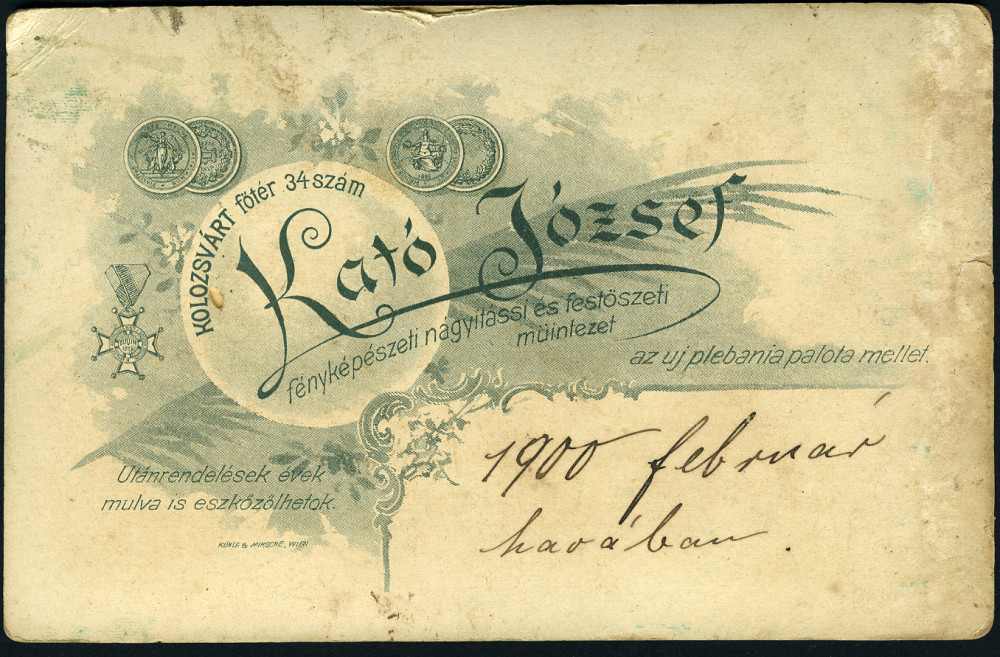 KOLOZSVÁRT főtér 34 szám
Kató József
fényképészeti nagyitássi és festőszeti
müintezet
az uj plebania palota mellet.
Utánrendelések évek
mulva is eszközölhetok.
KÜHLE & MIKSCHE, WIEN
1900 február
havában.